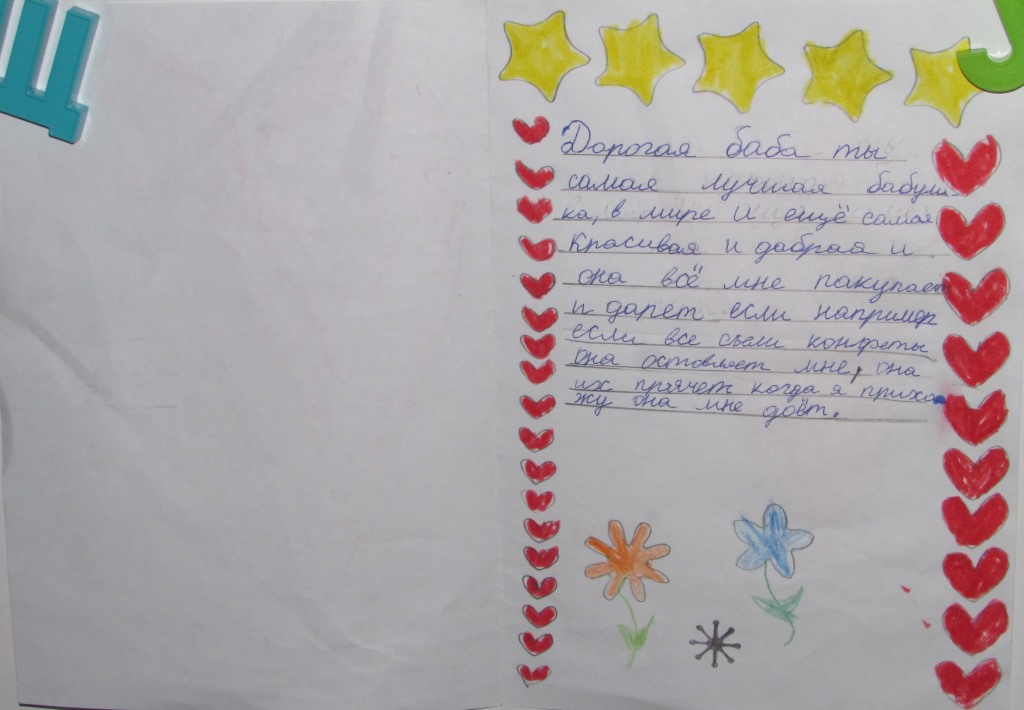 Дорогая баба ты
самая лучшая бабуш-
ка, в мире и ещё самая
красивая и дабрая и
она всё мне пакупает
и дарет если например
если все съели конфеты
она оставляет мне, она
их прячет когда я прихо
жу она мне даёт.